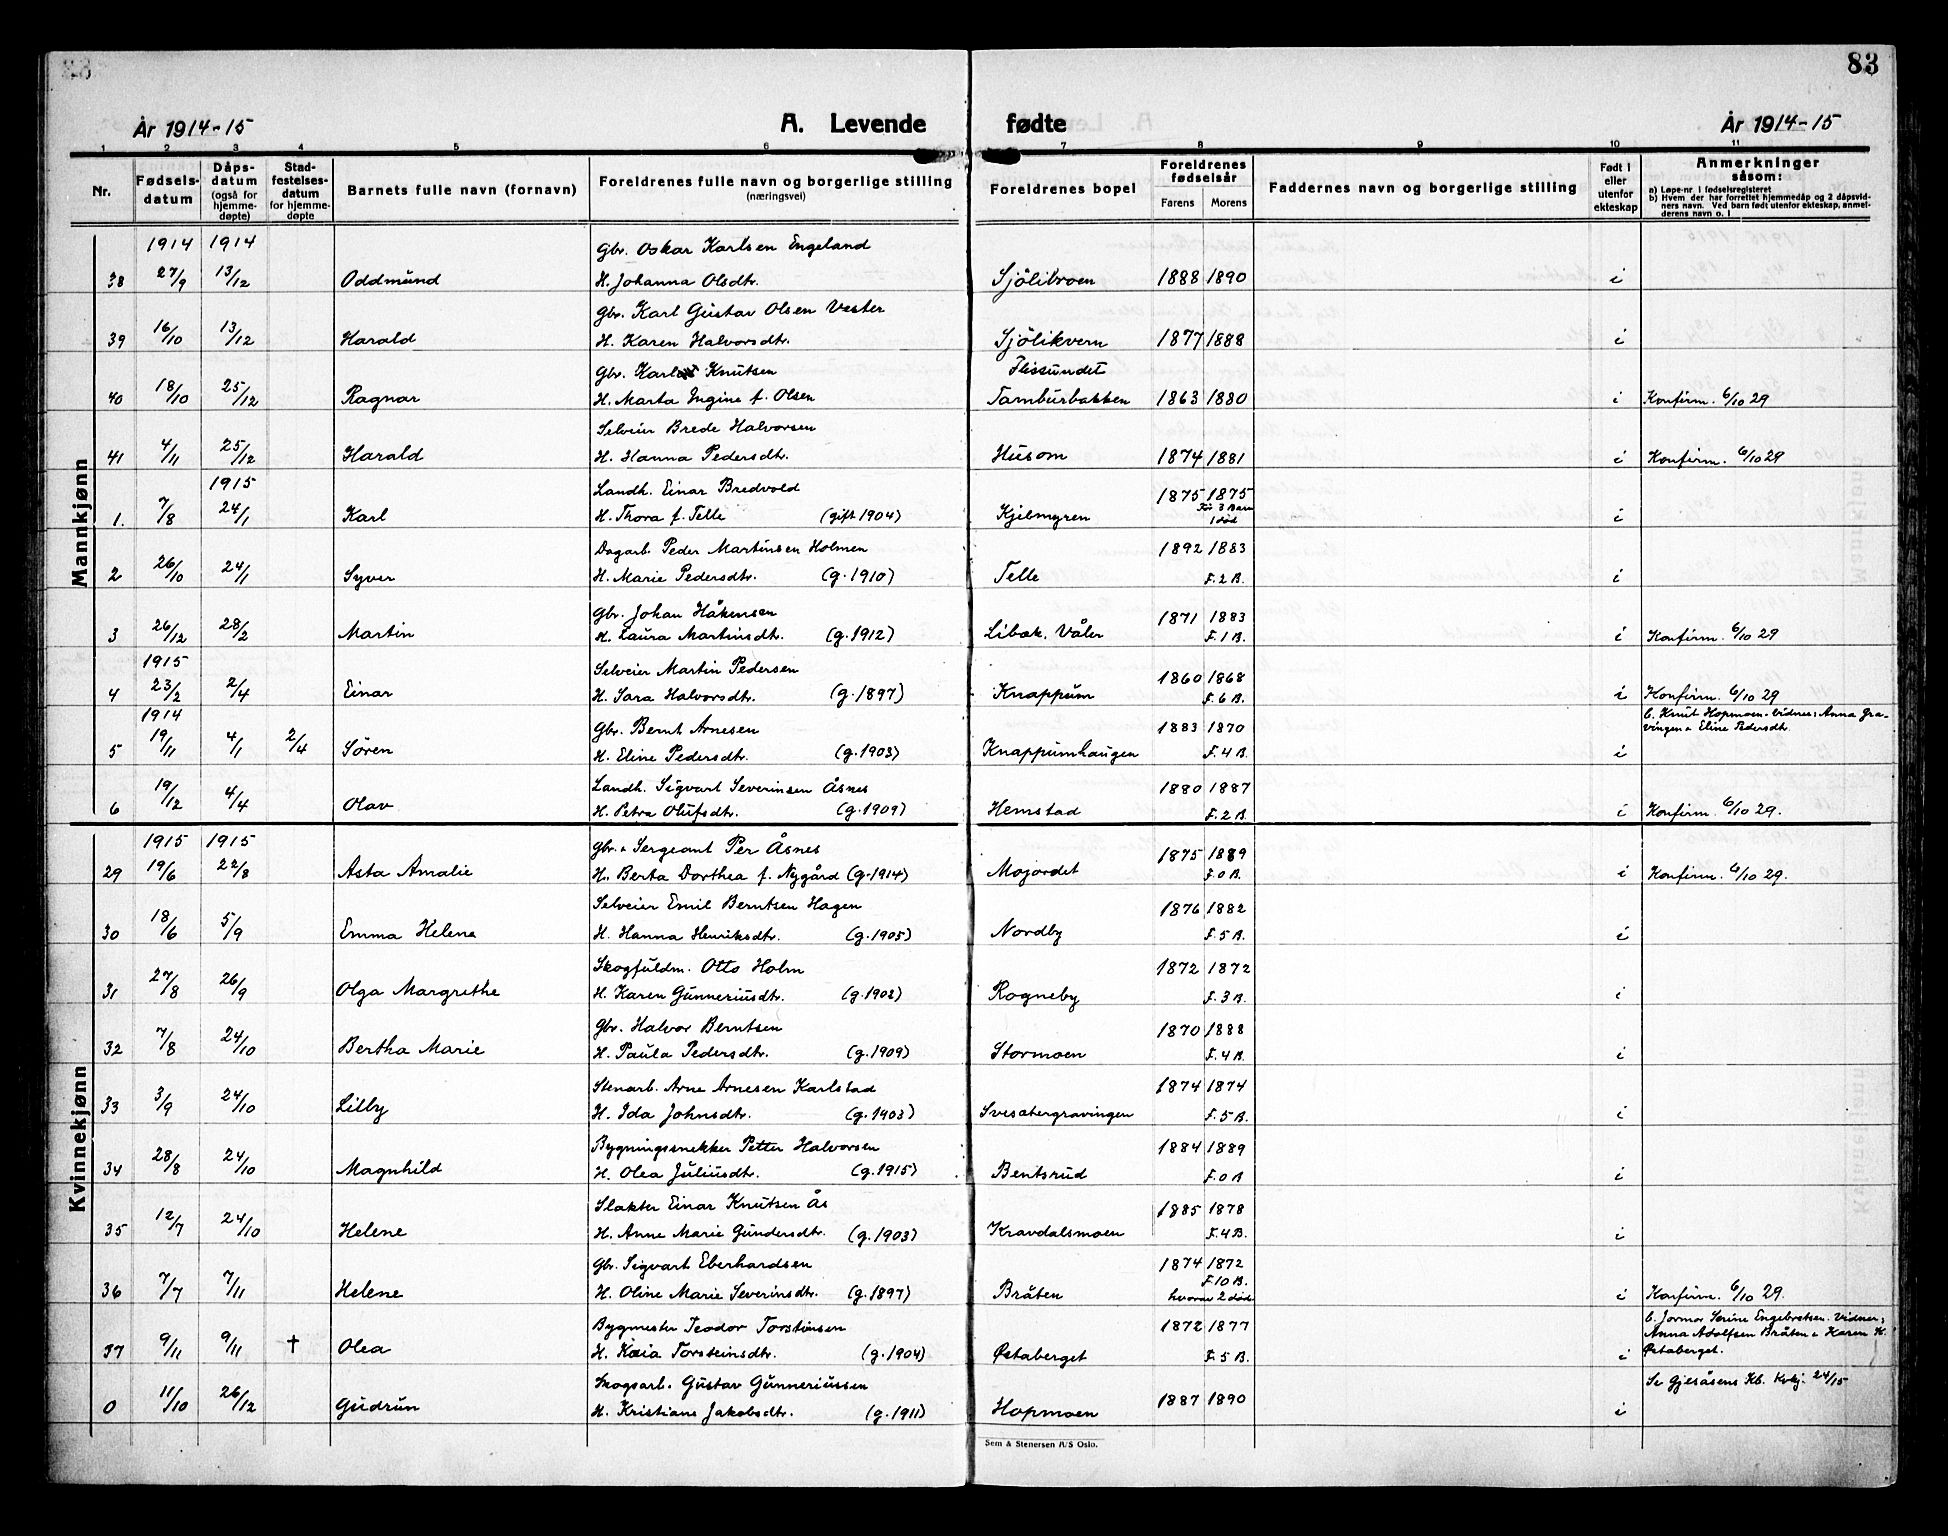 83
År 1914-15 A. Levende fødte År 1914-15
1 2 3 4 5 6 7 8 9 10 11
Nr. Fødsels-datum Dåps-datum (også for hjemme-døpte) Stad-festelses-datum for hjemme-døpte Barnets fulle navn (fornavn) Foreldrenes fulle navn og borgerlige stilling (næringsvei) Foreldrenes bopel Foreldrenes fødselsår Farens Morens Faddernes navn og borgerlige stilling Født i eller utenfor ekteskap Anmerkninger såsom:
a) Løpe-nr. i fødselsregisteret
b) Hvem der har forrettet hjemmedåp og 2 dåpsvid-
ners navn. Ved barn født utenfor ekteskap, anmel-
derens navn o. l
Mannkjønn
1914 1914 Gbr. Oskar Karlsen Engeland
38 27/9 13/12 Oddmund H. Johanna Olsdtr. Sjölibroen 1888 1890 i
Gbr. Karl Gustav Olsen Vester
39 16/10 13/12 Harald H. Karen Halvorsdtr. Sjölikvern 1877 1888 i
Gbr. Karl Knutsen Flissundet
40 18/10 25/12 Ragnar H. Marta Ingine f. Olsen Tamburbakken 1863 1880 i Konfirm. 6/10 29
Selveier Brede Halvorsen
41 4/11 25/12 Harald H. Hanna Pedersdtr. Husom 1874 1881 i Konfirm. 6/10 29
1915 Landh. Einar Bredvold 1875 1875
1. 7/8 24/1 Karl H. Thora f. Telle (gift 1904) Kjelmyren Før 3 Barn 1 død i
Dagarb. Peder Martinsen Holmen 1892 1883
2 26/10 24/1 Syver H. Marie Pedersdtr. (g. 1910) Telle F. 2 B. i
Gbr. Johan Håkensen 1871 1883
3 26/12 28/2 Martin H. Laura Martinsdtr. (g. 1912) Libæk. Våler F. 1 B. i Konfirm. 6/10 29
1915 Selveier Martin Pedersen 1860 1868
4 23/2 2/4 Einar H. Sara Halvorsdtr. (g. 1897) Knappum F. 6 B. i Konfirm. 6/10 29
1914 Gbr. Bernt Arnesen 1883 1870 b. Knut Hopmoen. vidner: Anna Gra-
vingen & Eline Pedersdtr.
5 19/11 4/1 2/4 Sören H. Eline Pedersdtr. (g. 1903) Knappumhaugen F. 4 B. i
Landh. Sigvart Severinsen Åsnes 1880 1887
6 19/12 4/4 Olav H. Petra Olufsdtr. (g. 1909) Hemstad F. 2 B. i Konfirm. 6/10 29.
Kvinnekjønn
1915 1915 Gbr. & Sergeant Per Åsnes 1875 1889
29 19/6 22/8 Asta Amalie H. Berta Dorthea f. Nygård (g. 1914) Mojordet F. 0 B. i Konfirm. 6/10 29.
Selveier Emil Berntsen Hagen 1876 1882
30 18/6 5/9 Emma Helene H. Hanna Henriksdtr. (g. 1905) Nordby F. 5 B. i
Skogfuldm. Otto Holm 1872 1872
31 27/8 26/9 Olga Margrethe H. Karen Gunneriusdtr. (g. 1902) Rogneby F. 3 B. i
Gbr. Halvor Berntsen 1870 1888
32 7/8 24/10 Bertha Marie H. Paula Pedersdtr. (g. 1909) Stormoen F. 4 B. i
Stenarb. Arne Arnesen Karlstad 1874 1874
33 3/9 24/10 Lilly H. Ida Johnsdtr. (g. 1903) Svesætergravingen F. 5 B. i
Bygningssnekker Petter Halvorsen 1884 1889
34 28/8 24/10 Magnhild H. Olea Juliusdtr. (g. 1915) Bentsrud F. 0 B i
Slakter Einar Knutsen Ås 1885 1878
35 12/7 24/10 Helene H. Anne Marie Gundersdtr. (g. 1903) Kravdalsmoen F. 4 B. i
Gbr. Sigvart Eberhardsen 1874 1872 F 10 B.
36 7/7 7/11 Helene H. Oline Marie Severinsdtr. (g. 1897) Bråten hvorav 2 døde i Konfirm. 6/10 29.
Bygmester Teodor Torstensen 1872 1877 b. Jormor Serine Engebretsen. vidner:
Anna Adolfsen Bråten & Karen K.
Østaberget.
37 9/11 9/11 † Olea H. Kaia Torsteinsdtr. (g. 1904) Østaberget F. 5 B. i
Skogsarb. Gustav Gunneriussen Se Gjesåsens Kb. Kvkj. 24/15
0 11/10 26/12 Gudrun H. Kristiane Jakobsdtr. (g. 1911) Hopmoen 1887 1890 i
Sem & Stenersen A/S Oslo.